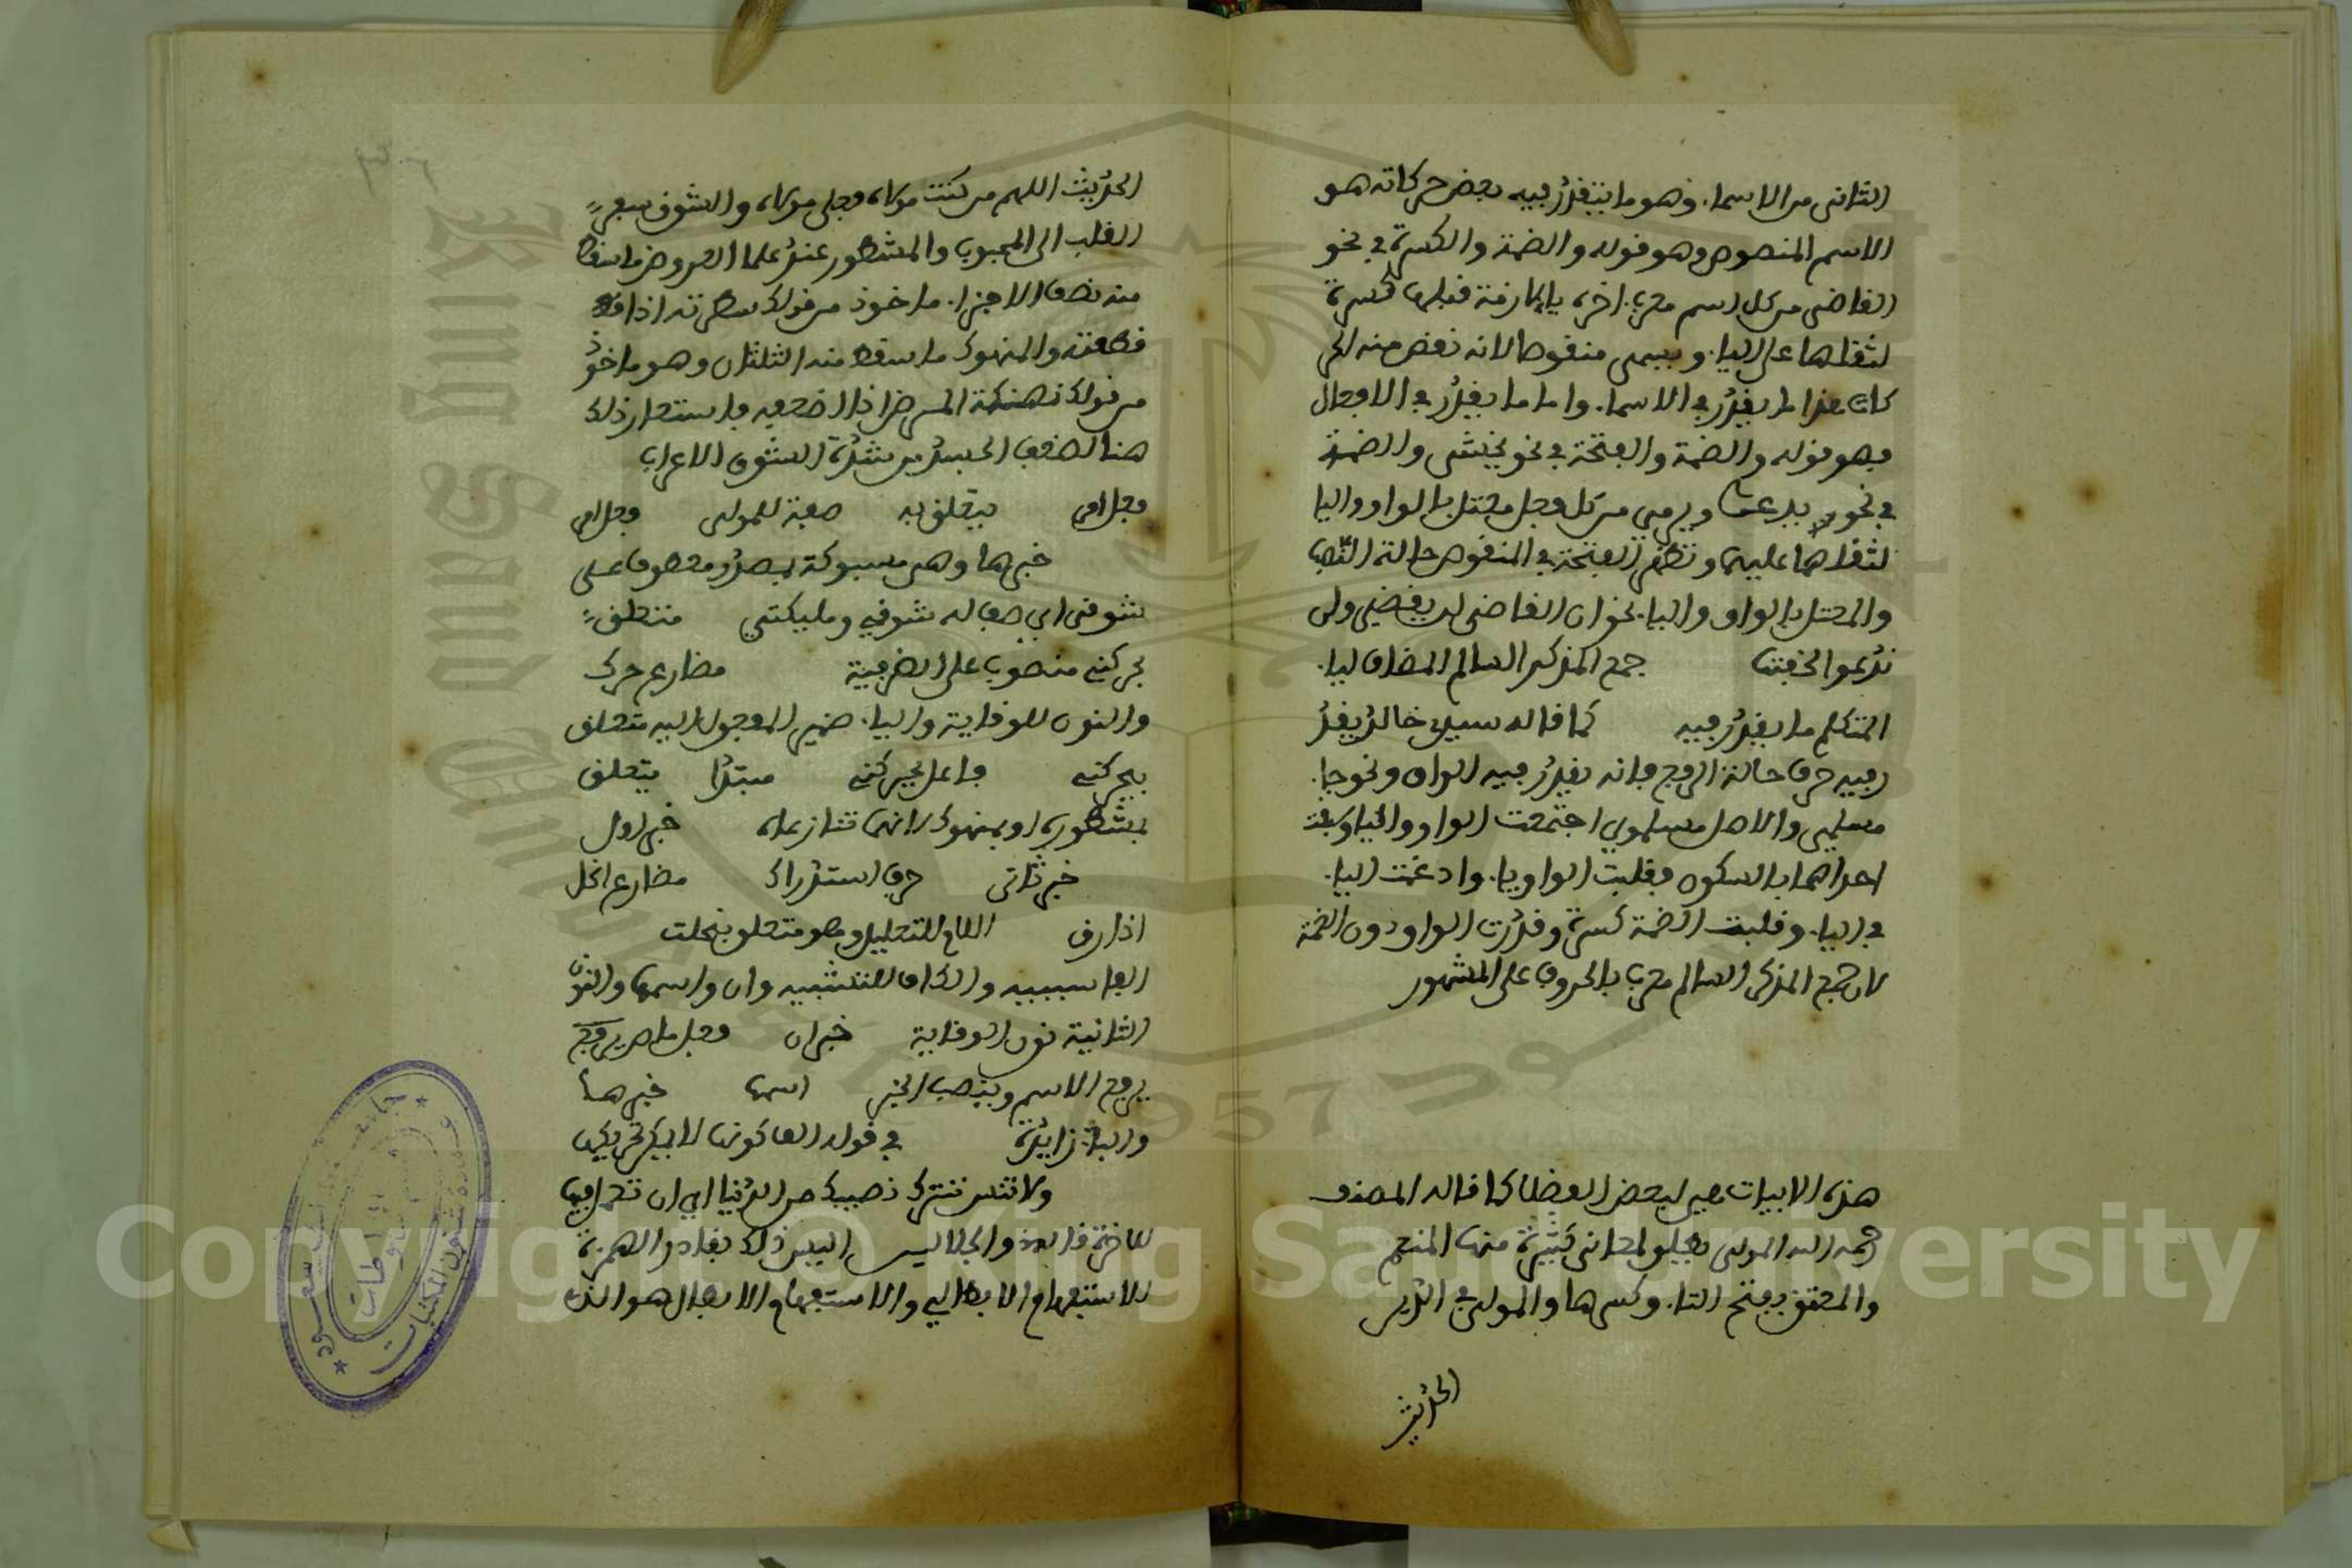 الثانى من الاسماء وهو ما يتقدر فيه بعض حركاته هو
الاسم المنقوص وهو قوله والضمة والكسرة في نحو
القاضى من كل اسم معرب اخره يا لازمة قبلها كسرة
لثقلها على اليا. ويسمى منقوصا لانه نقص منه الحر
كات هذا ما يقدر في الاسما. واما ما يقدر في الافعال
فهو قوله والضمة والفتحة في نحو يخشى والضمة
في نحو يدعوا ويرمي من كل فعل معتل بالواو واليا
لثقلها عليهما وتظهر الفتحة في المنقوص حالة النصب
والمعتل بالواو واليا. نحو ان القاضى لن يقضي ولن
ندعوا جمع المذكر السالم المضاف ليا.
المتكلم ما يقدر فيه كما قاله سيدي خالد يقدر
فيه حرف حالة الرفع فانه يقدر فيه الواو ونحو جا.
مسلمي والاصل مسلموي اجتمعت الواو واليا وسبقت
احداهما بالسكون فقلبت الواو يا. وادغمت اليا.
في اليا. وقلبت الضمة كسرة وقدرت الواو دون الضمة
لان جمع المذكر السالم معرب بالحروف على المشهور
هذه الابيات هي لبعض الفضلا كما قاله المصنف
رحمه الله المولى يطلق لمعانى كثيرة منها المنعم
والمعتق بفتح التا. وكسرها والمولى في
الحديث
الحديث اللهم من كنت مولاه فعلي مولاه والشوق سفر
القلب الى المحبوب والمشطور عند علما العروض ما سقط
منه نصف الاجزا. ماخوذ من قولك شطرته اذا
قطعته والمنهوك ما سقط منه الثلثان وهو ماخوذ
من قولك نهكة المرض اذا اضعفه فاستعار ذلك
هنا لضعف الجسد من شدة الشوق الاعراب
فعل امر يتعلق به صفة للمولى فعل امر
خبرها وهى مسبوكة بمصدر معطوف على
شوقى اي صف له شوقي ومليكتي متعلق
بحركني منصوب على الظرفية مضارع حرك
والنون للوقاية واليا. ضمير المفعول اليه متعلق
بحركني فاعل يحركني مبتدا يتعلق
بمشطور او بمنهوك لانهما تنازعاه خبر اول
خبر ثانى حرف استدراك مضارع انحل
اذا رق اللام للتعليل وهو متعلق بنحلت
الفا سببية والكاف للتشبيه وان واسمها والنون
الثانية نون الوقاية خبران فعل ماض يرفع
يرفع الاسم وينصب الخبر اسمها خبرها
والبا زايدة في قوله
ولا تنس تترك نصيبك من الدنيا اي ان تعمل فيها
للاخرة اليس ذلك بقادر الهمزة
للاستفهام الابطالي والاستفهام الابطال هو الذي
جامعة الملك سعود
عمادة شؤون المكتبات
قسم المخطوطات
Copyright © King Saud University
King Saud University
1957